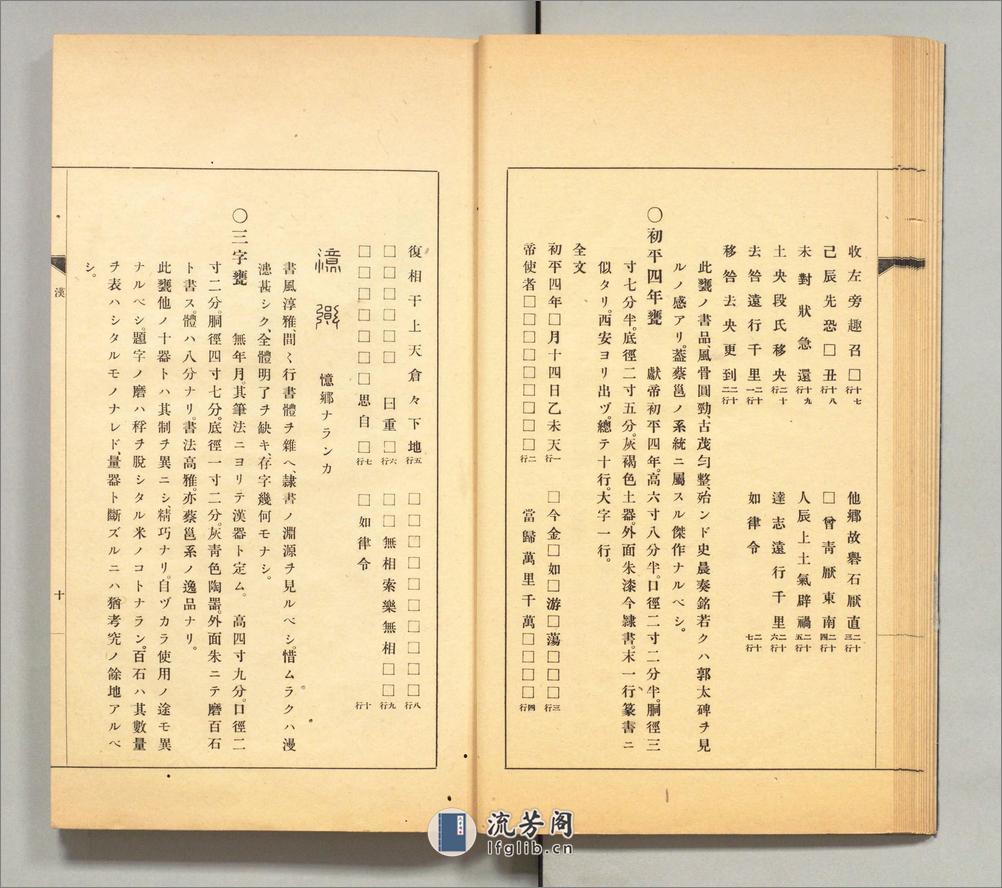 收左旁趣召□十七行
己辰先恐□丑十八行
未對狀急還十九行
土央段氏移央二十行
去咎遠行千里二十一行
移咎去央更到二十二行
他鄉故礜石厭直二十三行
□曾青厭東南二十四行
人辰上土氣辟禍二十五行
達志遠行千里二十六行
如律令二十七行
此甕ノ書品、風骨圓勁、古茂勻整、殆ンド史晨奏銘若クハ郭太碑ヲ見
ルノ感アリ。蓋蔡邕ノ系統ニ屬スル傑作ナルベシ。
〇初平四年甕 獻帝初平四年。高六寸八分半。口徑二寸二分半。胴徑三
寸七分半。底徑二寸五分。灰褐色土器。外面朱漆今隷書。末一行篆書ニ
似タリ。西安ヨリ出ヅ。總テ十行。大字一行。
全文
初平四年□月十四日乙未天一行
帝使者□□□□□□□□□二行
□今金□如□游□蕩□□□□三行
當歸萬里千萬□□□□四行
復相干上天倉々下地五行
□□□□□□曰重□六行
□□□□□□□思自□七行
□□□□□□□□□□□八行
□□無相索樂無相□□九行
□如律令十行
憶鄉ナランカ
書風淳雅、間〻行書體ヲ雜ヘ、隷書ノ淵源ヲ見ルベシ。惜ムラクハ漫
漶甚シク、全體明了ヲ缺キ、存字幾何モナシ。
〇三字甕 無年月。其筆法ニヨリテ漢器ト定ム。 高四寸九分。口徑二
寸二分。胴徑四寸七分。底徑一寸二分。灰青色陶器。外面朱ニテ磨百石
ト書ス。體ハ八分ナリ。書法高雅、亦蔡邕系ノ逸品ナリ。
此甕他ノ十器トハ其制ヲ異ニシ、精巧ナリ。自ヅカラ使用ノ途モ異
ナルベシ。題字ノ磨ハ稃ヲ脫シタル米ノコトナラン。百石ハ其數量
ヲ表ハシタルモノナレド、量器ト斷ズルニハ猶考究ノ餘地アルベ
シ。
漢
十
流芳阁
lfglib.cn